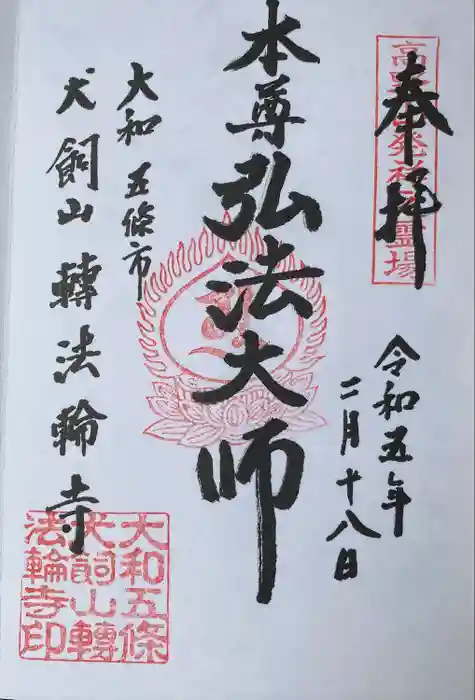 奉拝
高野山発祥之霊場
令和五年
二月十八日
本尊弘法大師
大和五條市
犬飼山轉法輪寺
大和五條
犬飼山轉
法輪寺印